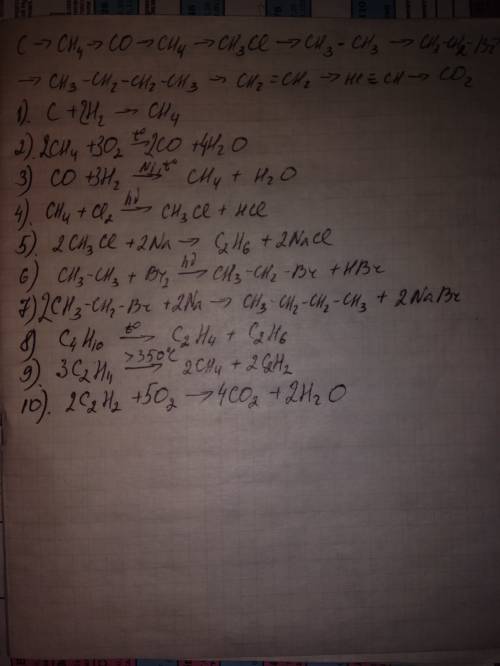 C → CH₄ → CO → CH₄ → CH₃Cl → CH₃-CH₃ → CH₃-CH₂-Br
→ CH₃-CH₂-CH₂-CH₃ → CH₂=CH₂ → HC≡CH → CO₂
1). C + 2H₂ → CH₄
2) 2CH₄ + 3O₂ →(t°) 2CO + 4H₂O
3) CO + 3H₂ →(Ni, t°) CH₄ + H₂O
4) CH₄ + Cl₂ →(hν) CH₃Cl + HCl
5) 2CH₃Cl + 2Na → C₂H₆ + 2NaCl
6) CH₃-CH₃ + Br₂ →(hν) CH₃-CH₂-Br + HBr
7) 2CH₃-CH₂-Br + 2Na → CH₃-CH₂-CH₂-CH₃ + 2NaBr
8) C₄H₁₀ →(t°) C₂H₄ + C₂H₆
9) 3C₂H₄ →(>350°C) 2CH₄ + 2C₂H₂
10). 2C₂H₂ + 5O₂ → 4CO₂ + 2H₂O